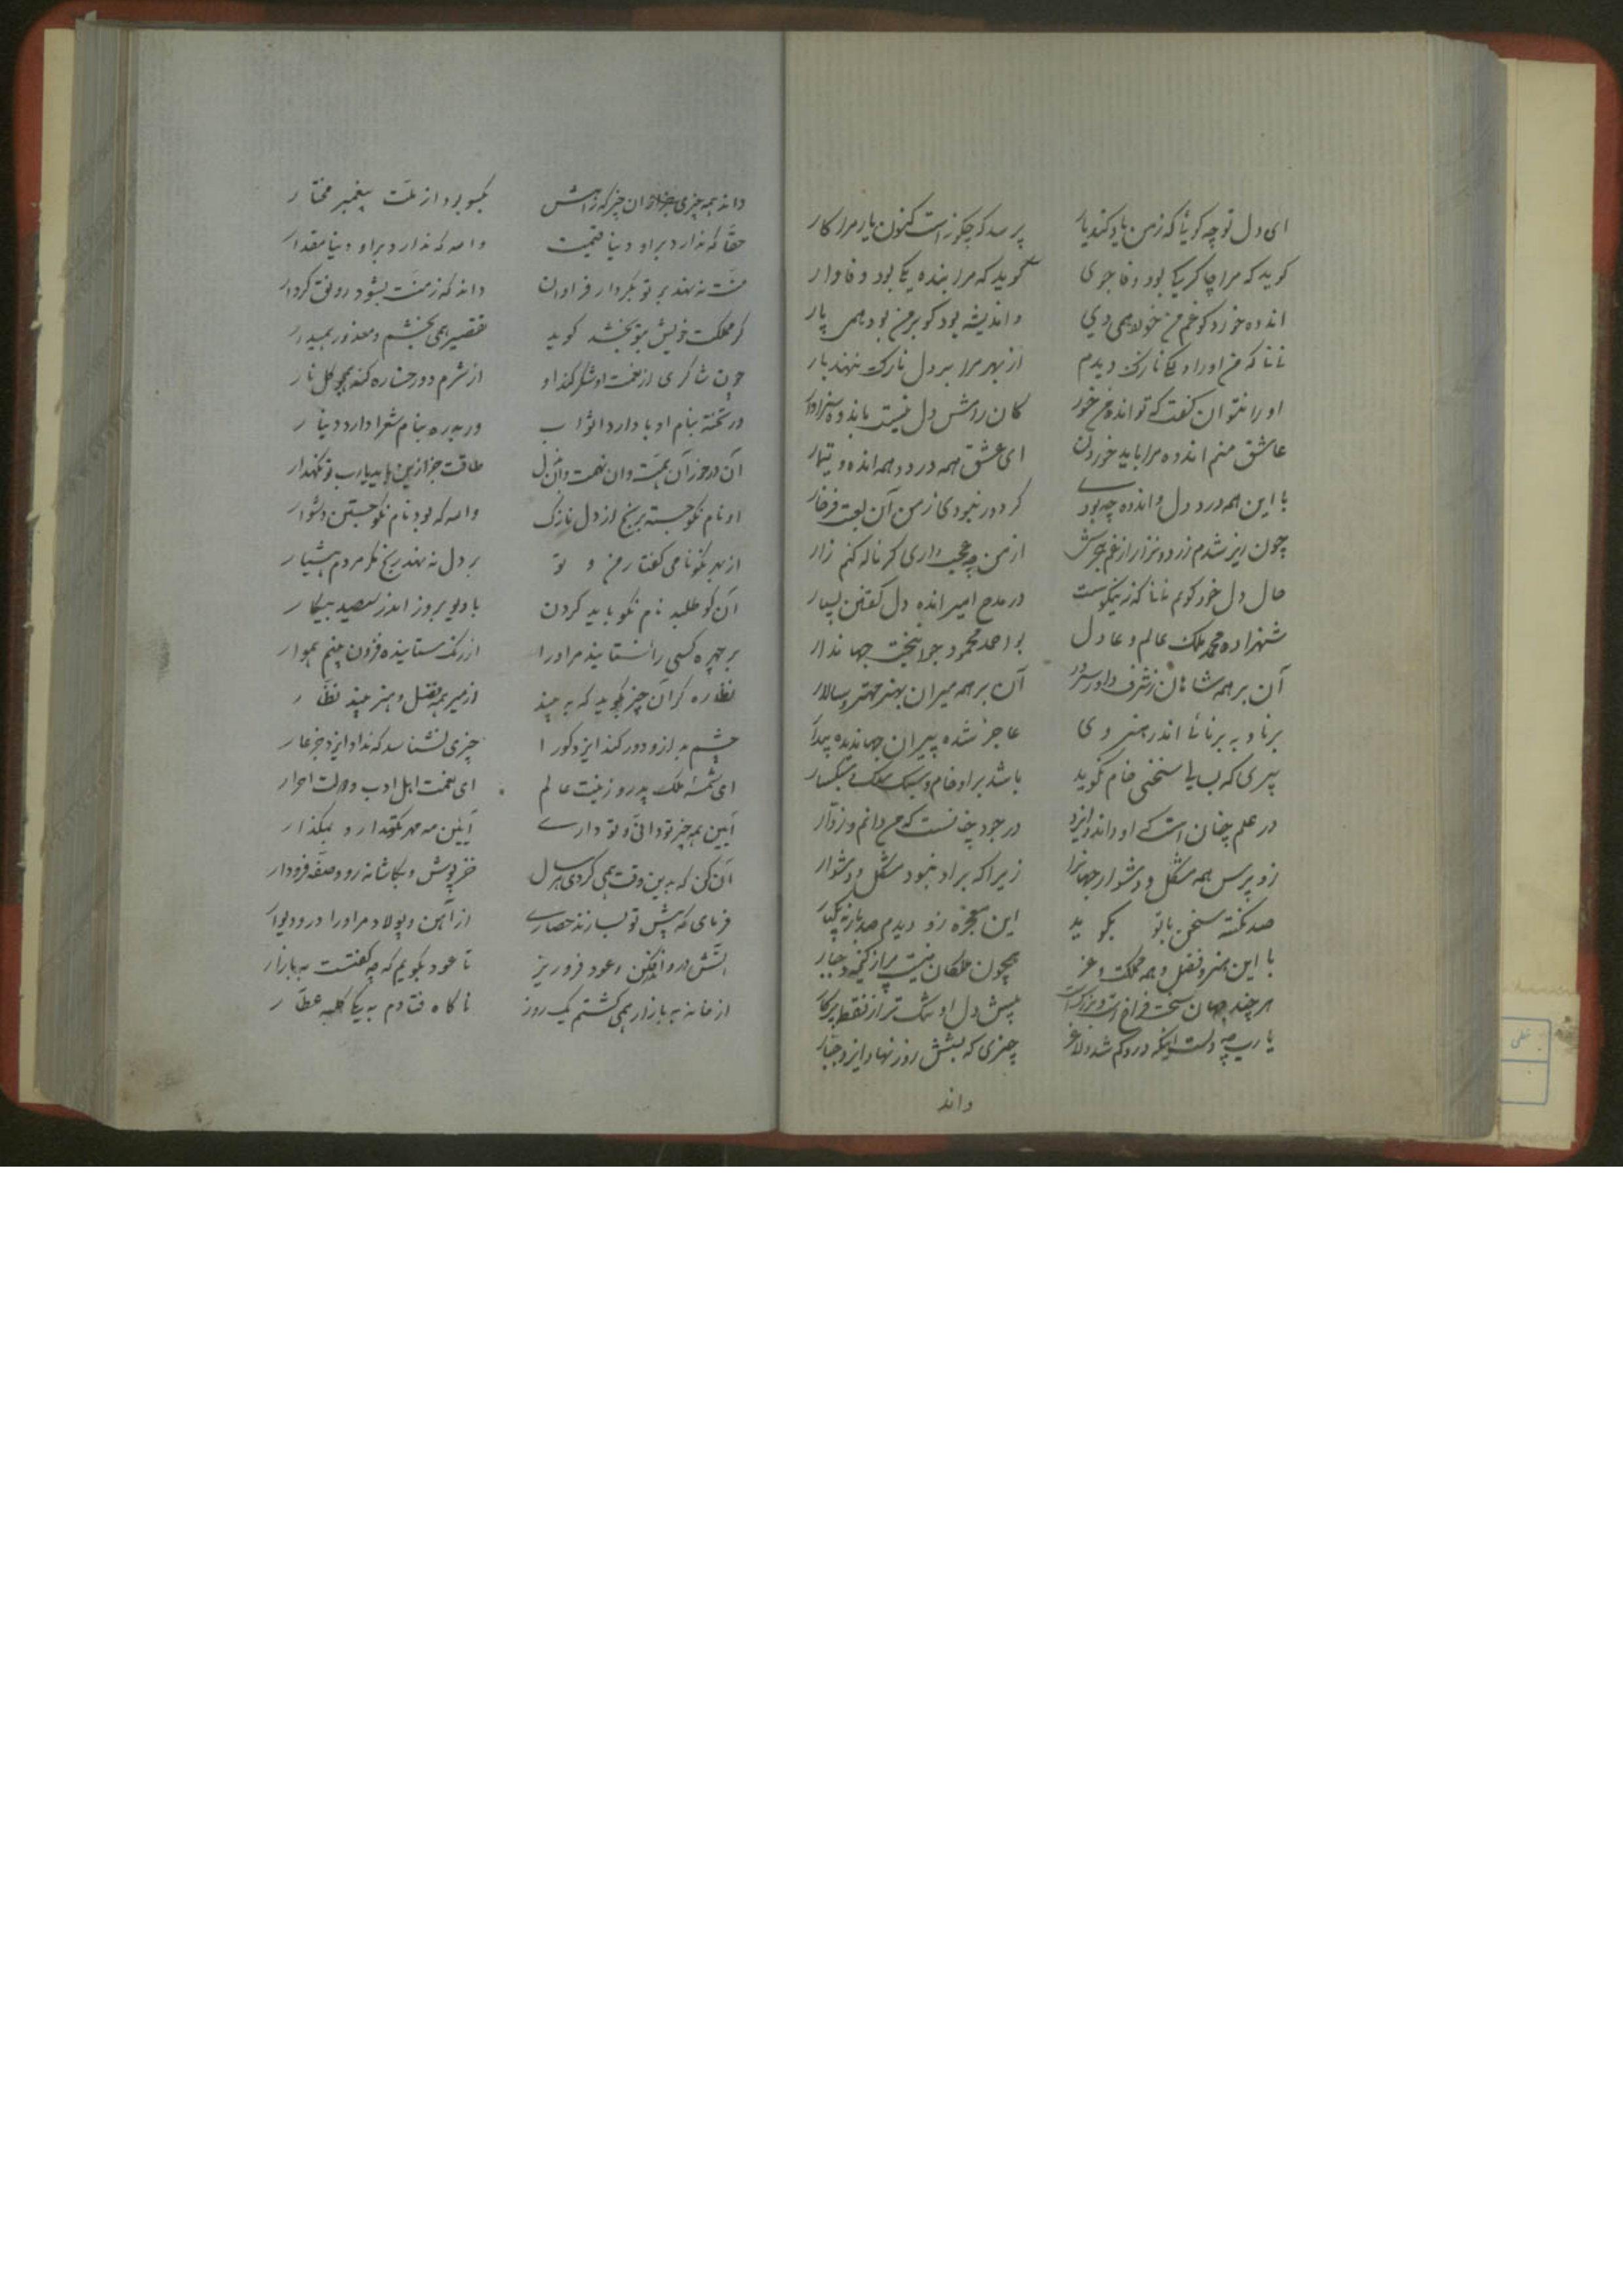 ای دل تو چه گویی که ز من یاد کند یار پرسد که چگونه است کنون یار مرا کار
گوید که مرا چاکریکی بود وفا جوی گوید که مرا بنده یکی بود وفادار
انده خورد کو غم من خورد همی دی و اندیشه بود کو بر من بود همی پار
مانا که من او را دلکی نازک دیدم از بهر مرا بر دل نازک ننهد بار
او را نتوان گفت که تو انده من خور کان را مش دل نیست بانده سزاوار
عاشق منم انده مرا باید خوردن ای عشق همه درد و همه انده و تیمار
با این همه درد دل و انده چه بودی گر دور نبودی ز من آن لعبت فرخار
چون زیر شدم زرد و نزار از غم هجرش از من چه عجب داری گر ناله کنم زار
حال دل خود گویم مانا که نه نیکوست در مدح امیر انده دل گفتن بسیار
شهزاده محمد ملک عالم و عادل بو احمد محمود جوانبخت جهاندار
آن بر همه شاهان ز شرف داور و سرور آن بر همه میران بهنر مهتر و سالار
برنا و به برنائی اندر هنر وی عاجز شده پیران جهاندیده بیدار
پیری که سخنی خام نگوید باشد بر او خام و سبک سبکسار
در علم چنان است که او داند و ایزد در جود چنانست که من دانم و زوار
زو پرس همه مشکل و دشوار جهانرا زیرا که بر او نبود مشکل و دشوار
صد نکته سخن با تو بگوید این معجزه زو دیدم صد بار نه یکبار
با این هنر و فضل و همه مملکت و عز همچون ملکان نیست پر از کبر و جبار
هر چند جهان سخت فراخ است و بزرگ است پیش دل او تنگ تر از نقطه پرگار
یا رب چه دلست اینکه درو گم شد و لاغر چیزی که بشش روز نهاد ایزد جبار
داند
داند همه چیزی جز از آن چیز که زانش یکسو برد از ملت پیغمبر مختار
حقا که ندارد بر او دنیا قیمت والله که ندارد بر او دنیا مقدار
منت ننهد بر تو بکردار فراوان داند که ز منت بشود رونق کردار
گر مملکت خویش بتو بخشد گوید تقصیر همی بخشم و معذور همیدار
چون شاکری از نعمت او شکر گذارد از شرم دو رخساره کند همچو گل نار
در تخته بنام ادبا دارد اثواب در بدره بنام شعرا دارد دینار
آن در خور آن همت و آن نهمت و آن دل طاقت جز ازین باید یارب تو نگهدار
او نام نکو جسته برنج از دل نازک والله که بود نام نکو جستن دشوار
از بهر نکو نامی گفتار من و تو بر دل ننهد رنج مگر مردم هشیار
آن کو طلبد نام نکو باید کردن با دیو بروز اندر سیصد پیکار
بر چهره کسی را نستایند مر او را از رنگ ستاینده فزون بینم هموار
نظاره گر آن چیز بگوید که به بیند از میر همه فضل و هنر بیند نظار
چشم بد ازو دور کند ایزد کو را چیزی نشناسد که نداد ایزد جز عار
ای شمسه ملک پدر و زینت عالم ای نعمت اهل ادب و دولت احرار
آیین همه چیز تو دانی و تو داری آیین مه مهر نگهدار و بمگذار
آن کن که بدین وقت همی کردی هر سال خز پوش و بکاشانه رو و صفه فرودار
فرمای که پیش تو بسازند حصاری از آهن و پولاد مر او را در و دیوار
آتش در و افکن و عود فرو ریز تا عود بگویم که چه گفتست به بازار
از خانه به بازار همی گشتم یک روز ناگاه فتادم به یکی کلبه عطار